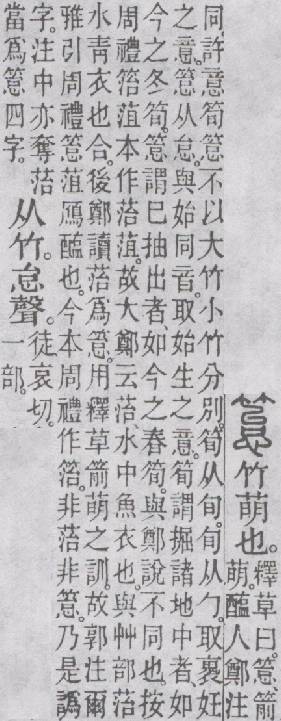 䈚竹萌也。釋草曰。䈚、箭
萌。醢人鄭注
同許意筍䈚不以大竹小竹分別。筍从旬。旬从勹。取裹妊
之意。䈚从怠。與始同音。取始生之意。筍謂掘諸地中者。如
今之冬筍。䈚謂已抽出者、如今之春筍。與鄭說不同也。按
周禮箈菹本作菭菹。故大鄭云菭、水中魚衣也。與艸部菭
水青衣也合。後鄭讀菭爲䈚。用釋草箭萌之訓。故郭注爾
雅引周禮䈚菹鴈醢也。今本周禮作箈。非菭非䈚。乃是譌
字。注中亦奪菭
當爲䈚四字。
从竹。怠聲。徒哀切。
一部。